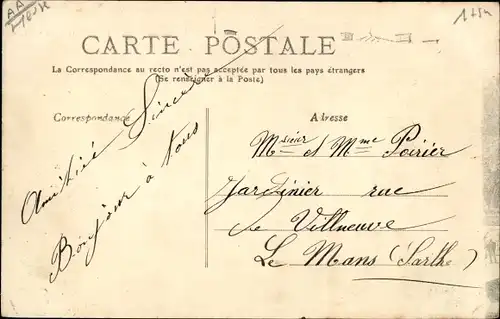 CARTE POSTALE
La Correspondance au recto n'est pas acceptée par tous les pays étrangers
(Se renseigner à la Poste)
Correspondance
Adresse
Amitié Sincère
Bonjour à tous
Msieur et Mme Poirier
Jardinier rue
de Villneuve
Le Mans (Sarthe)